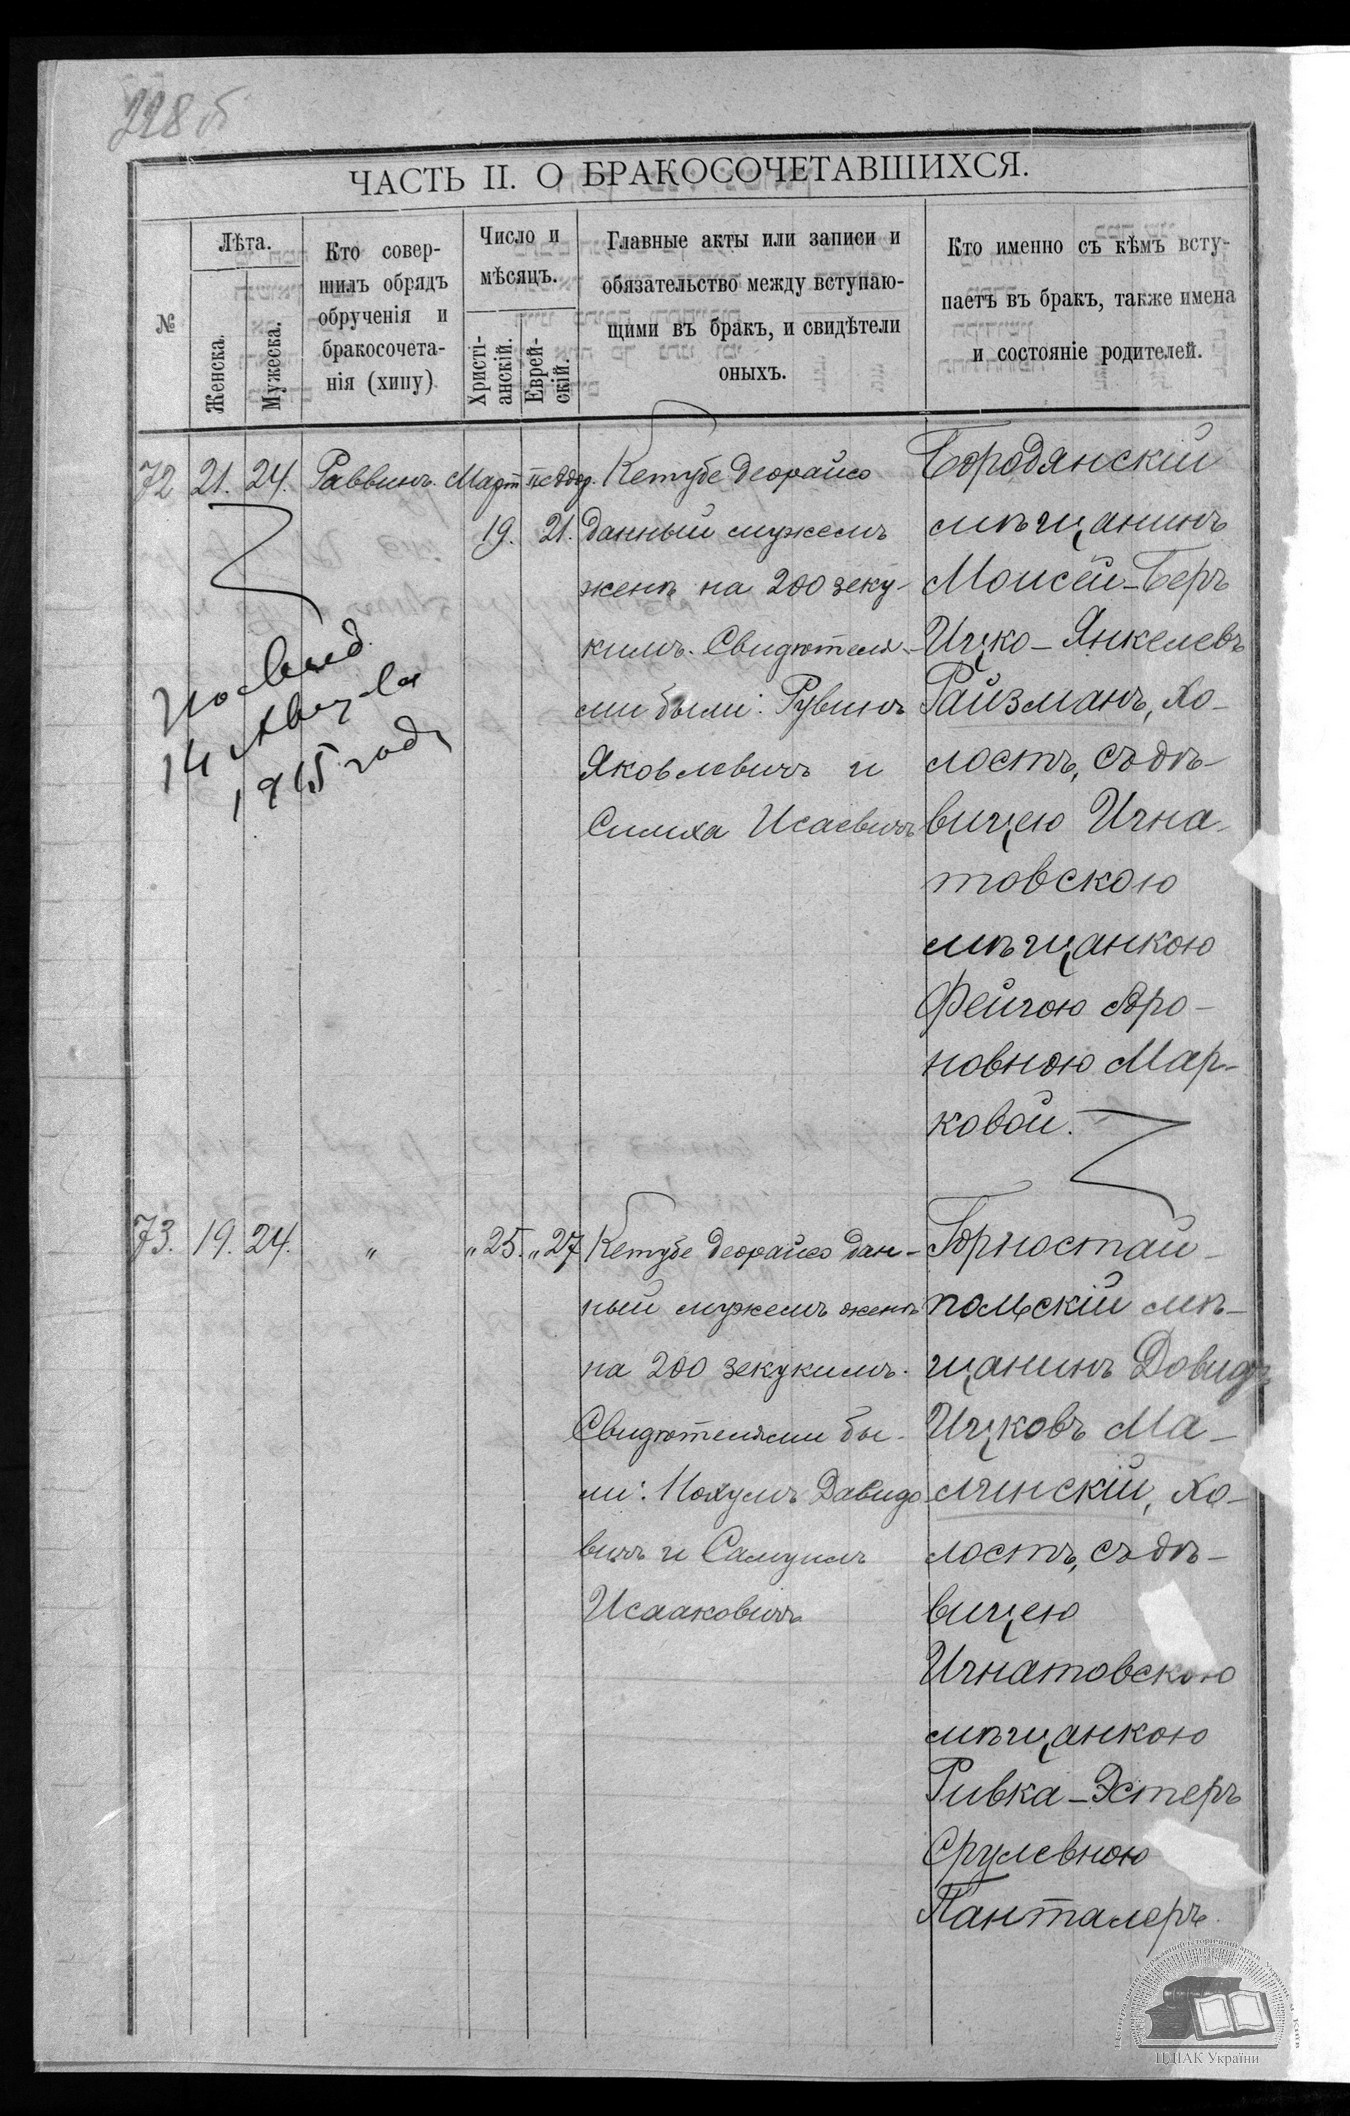 228 об
ЧАСТЬ II. О БРАКОСОЧЕТАВШИХСЯ.
№
Лѣта.
Женска.
Мужеска.
Кто совер-
шилъ обрядъ
обрученія и
бракосочета-
нія (хипу)
Число и
мѣсяцъ.
Христі-
анскій.
Еврей-
скій.
Главные акты или записи и
обязательство между вступаю-
щими въ бракъ, и свидѣтели
оныхъ.
Кто именно съ кѣмъ всту-
паетъ въ бракъ, также имена
и состояніе родителей.
72 21. 24. Раввинъ. Март
19. 21.
Кетубе деорайсо
данный мужемъ
женѣ на 200 зеку-
кимъ. Свидѣтеля-
ми были: Рувинъ
Яковлевичъ и
Симха Исаевичъ
Бородянскій
мѣщанинъ
Моисей-Беръ
Ицко-Янкелевъ
Райзманъ, хо-
лостъ, съ дѣ-
вицею Игна-
товскою
мѣщанкою
Фейгою Аро-
новною Мар-
ковой.
14 Августа
1915 года
73. 19. 24. " " 25. " 27
Кетубе деорайсо дан-
ный мужемъ женѣ
на 200 зекукимъ.
Свидѣтелями бы-
ли: Нохумъ Давидо
вичъ и Самуилъ
Исааковичъ
Горностай-
польскій мѣ-
щанинъ Довидъ
Ицковъ Ма-
линскій, хо-
лостъ, съ дѣ-
вицею
Игнатовскою
мѣщанкою
Ривка-Эстеръ
Срулевною
Панталеръ.
ЦДІАК України